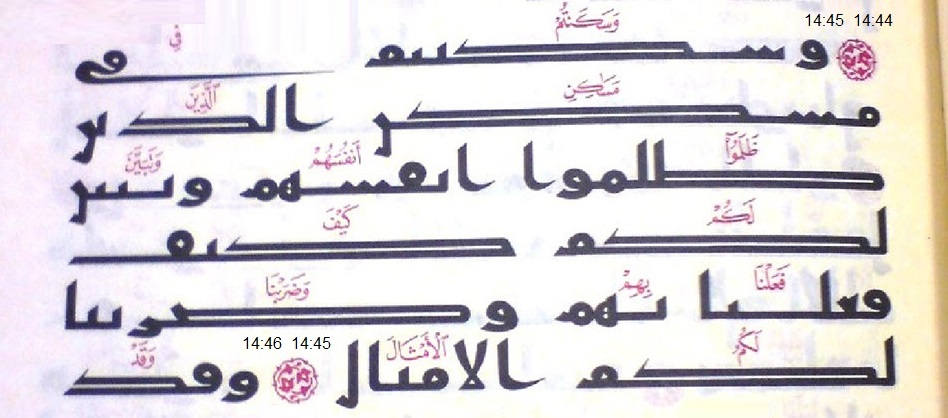 14:45 14:44
وَسَكَنتُمْ فِي
وسكنتم في
مَسَٰكِنِ ٱلَّذِينَ
مسكن الذين
ظَلَمُوٓا۟ أَنفُسَهُمْ وَتَبَيَّنَ
ظلموا انفسهم وتبين
لَكُمْ كَيْفَ
لكم كيف
فَعَلْنَا بِهِمْ وَضَرَبْنَا
فعلنا بهم وضربنا
لَكُمُ ٱلْأَمْثَالَ 14:46 14:45 وَقَدْ
لكم الامثال وقد